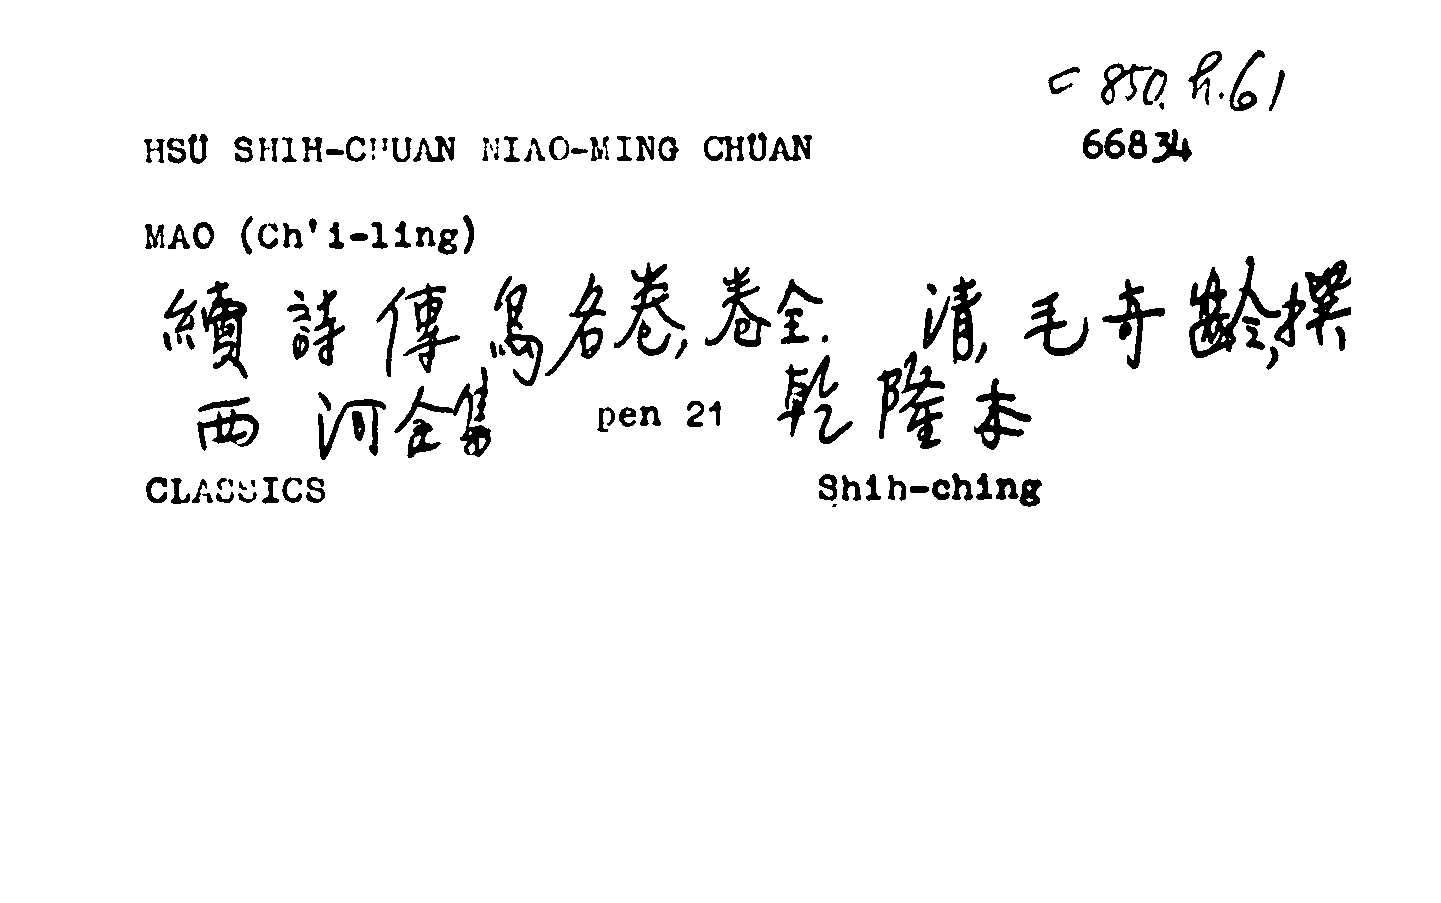 = 850. h. 61
HSÜ SHIH-CHUAN NIAO-MING CHÜAN 66834
MAO (Ch'i-ling)
續詩傳鳥名卷, 卷全. 清, 毛奇齡, 撰
西河全集 pen 21 乾隆本
CLASSICS Shih-ching